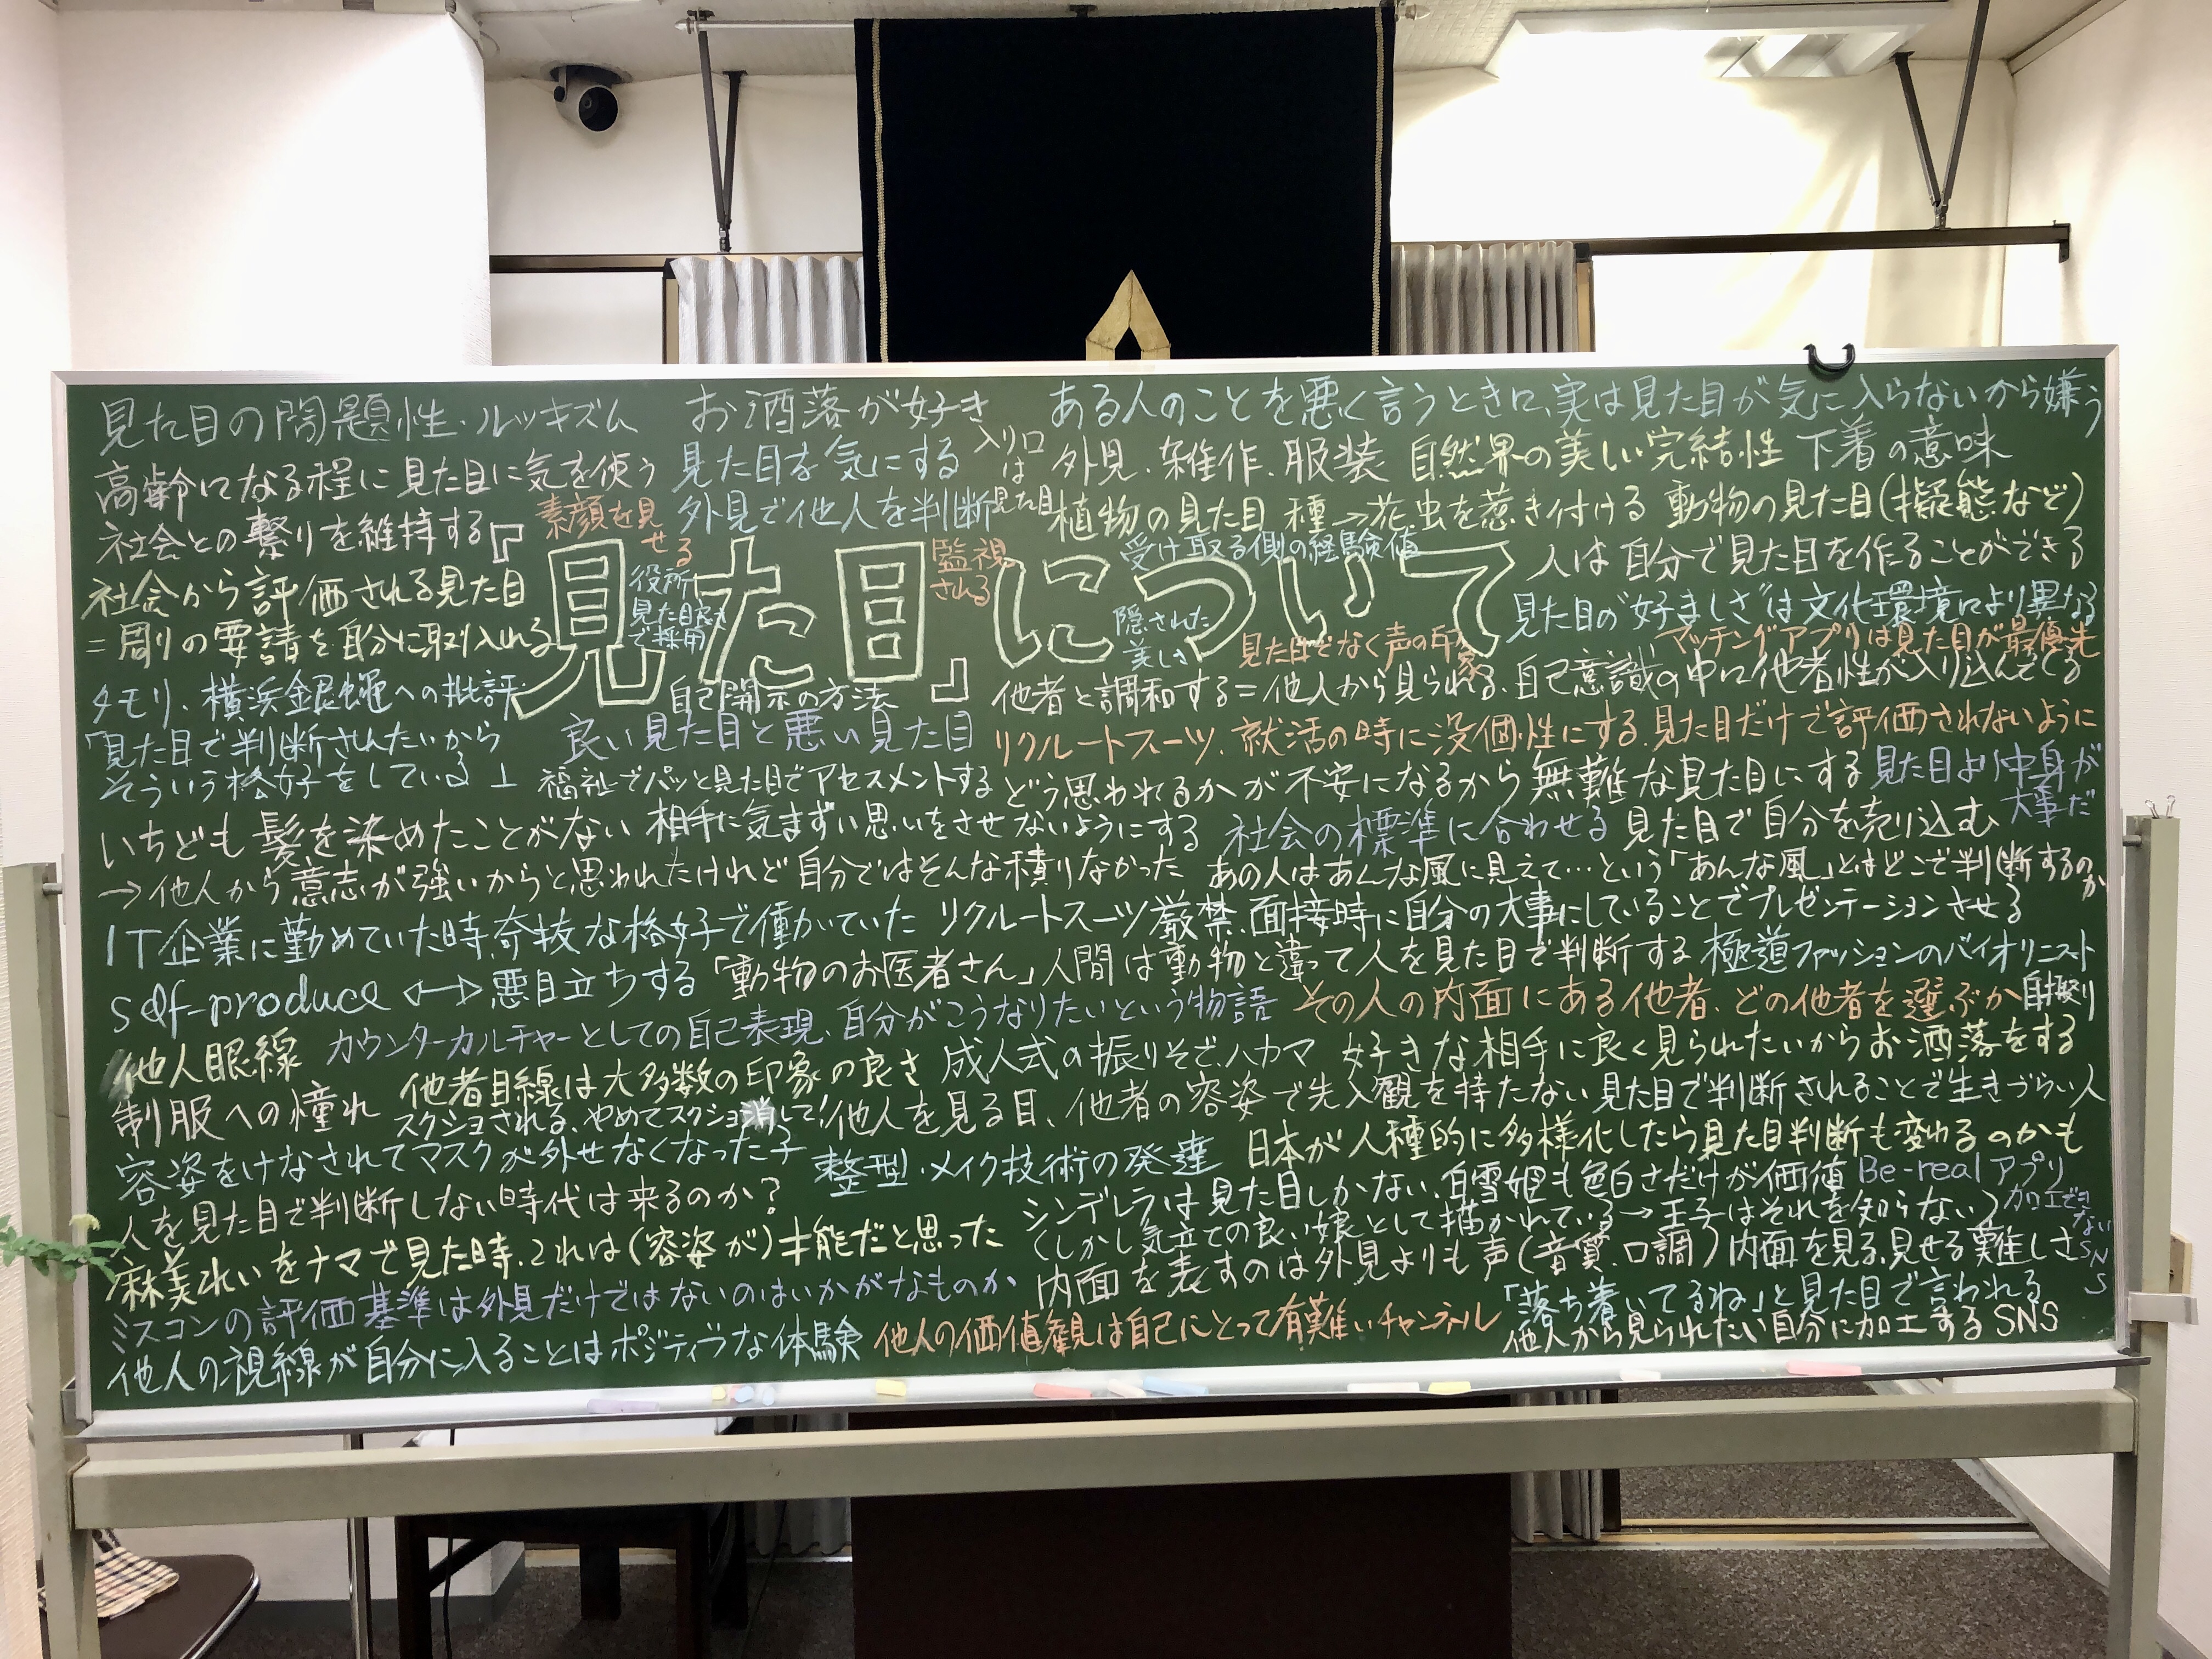 見た目の問題性・ルッキズム
お洒落が好き
ある人のことを悪く言うときに、実は見た目が気に入らないから嫌う
高齢になる程に見た目に気を使う
見た目を気にする
入り口は見た目
外見、雑作、服装
自然界の美しい完結性
下着の意味
社会との繋りを維持する
素顔を見せる
外見で他人を判断
植物の見た目 種→花虫を惹き付ける
動物の見た目(擬態など)
『見た目』について
役所 見た目良さで採用
監視される
受け取る側の経験値
隠された美しさ
人は自分で見た目を作ることができる
社会から評価される見た目
=周りの要請を自分に取り入れる
見た目の"好ましさ"は文化環境により異なる
見た目でなく声の印象
マッチングアプリは見た目が最優先
タモリ、横浜銀蠅への批評
自己開示の方法
他者と調和する=他人から見られる、自己意識の中に他者性が入り込んでくる
「見た目で判断されたいから
そういう格好をしている」
良い見た目と悪い見た目
リクルートスーツ、就活の時に没個性にする、見た目だけで評価されないように
福祉でパッと見た目でアセスメントする
どう思われるかが不安になるから無難な見た目にする
見た目より中身が大事だ
いちども髪を染めたことがない
相手に気まずい思いをさせないようにする
社会の標準に合わせる
見た目で自分を売り込む
→他人から意志が強いからと思われたけれど自分ではそんな積りなかった
あの人はあんな風に見えて…という「あんな風」とはどこで判断するのか
IT企業に勤めていた時、奇抜な格好で働いていた
リクルートスーツ厳禁、面接時に自分の大事にしていることでプレゼンテーションさせる
self-produce ↔ 悪目立ちする
「動物のお医者さん」人間は動物と違って人を見た目で判断する
極道ファッションのバイオリニスト
他人眼線
カウンターカルチャーとしての自己表現、自分がこうなりたいという物語
その人の内面にある他者、どの他者を選ぶか
自撮り
他者目線は大多数の印象の良さ
成人式の振りそで、ハカマ
好きな相手に良く見られたいからお洒落をする
制服への憧れ
スクショされる、やめてスクショ消して!
他人を見る目、他者の容姿で先入観を持たない
見た目で判断されることで生きづらい人
容姿をけなされてマスクが外せなくなった子
整型・メイク技術の発達
日本が人種的に多様化したら見た目判断も変わるのかも
人を見た目で判断しない時代は来るのか?
シンデレラは見た目しかない、白雪姫も色白さだけが価値
(しかし気立ての良い娘として描かれている→王子はそれを知らない)
Be-realアプリ 加工できないSNS
麻美れいをナマで見た時、これは(容姿が)才能だと思った
内面を表すのは外見よりも声(音質、口調)
内面を見る、見せる難しさ
ミスコンの評価基準は外見だけではないのはいかがなものか
「落ち着いてるね」と見た目で言われる
他人の視線が自分に入ることはポジティブな体験
他人の価値観は自己にとって有難いチャンネル
他人から見られたい自分に加工するSNS